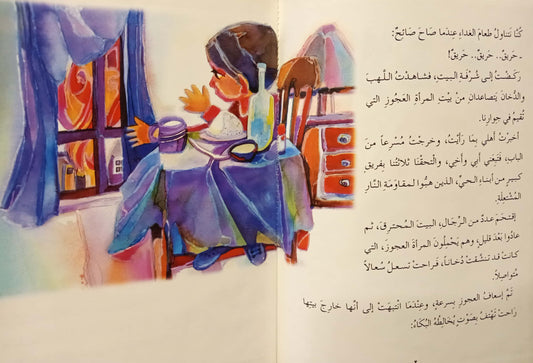 كُنَّا نَتناولُ طعامَ الغداءِ عِندَما صَاحَ صَائِحٌ:
ـ حَريقٌ.. حَريقٌ.. حَريقٌ!
رَكضْتُ إلى شُرْفَةِ البيتِ، فشاهدْتُ اللَّهبَ
والدُّخانَ يتصاعَدانِ مِنْ بَيْتِ المرأةِ العَجُوزِ التي
تُقيمُ في جِوارِنا.
أخبرْتُ أهلي بِمَا رَأَيْتُ، وخرجْتُ مُسْرعاً منَ
البابِ، فتبِعَني أبي وأخي، والتحقْنا ثلاثتُنا بِفريقٍ
كبيرٍ من أبناءِ الحيِّ، الذين هبُّوا لمقاومَةِ النَّارِ
المُشْتعلةِ.
اِقتحَمَ عددٌ من الرِّجالِ، البيتَ المُحترِقَ، ثم
عادُوا بَعْدَ قليلٍ، وهم يَحْمِلُونَ المرأةَ العجوزَ، التي
كانتْ قد تنشَّقتْ دُخاناً، فراحتْ تسعلُ سُعالاً
مُتواصِلاً.
تَمَّ إسعافُ العجوزِ بِسرعةٍ، وعِنْدَما انْتبهَتْ إلى أنَّها خارِجَ بيتِها
راحتْ تَهْتفُ بصَوْتٍ يُخالِطُهُ البُكاءُ: